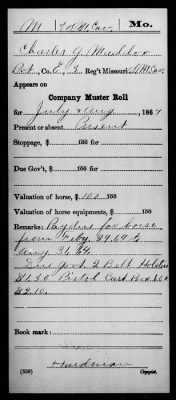 M | 3 S.M. Cav. | Mo.
Charles G. Maddox
Pvt., Co. E, 3 Reg't Missouri S.M. Cav.
Appears on
Company Muster Roll
for July & Aug, 1864
Present or absent Present
Stoppage, $ 100
Due Gov't, $ 100
Valuation of horse, $ 100 100
Valuation of horse equipments, $ 100
Remarks: Pay due for horse
from Feby. 29.64 to
Aug 31, 64
Due Govt. 2 Belt Holsters
$1.50 Pistol Cart Box 60¢
$2.10.
Book mark:
Hardman
(358) Copyist.